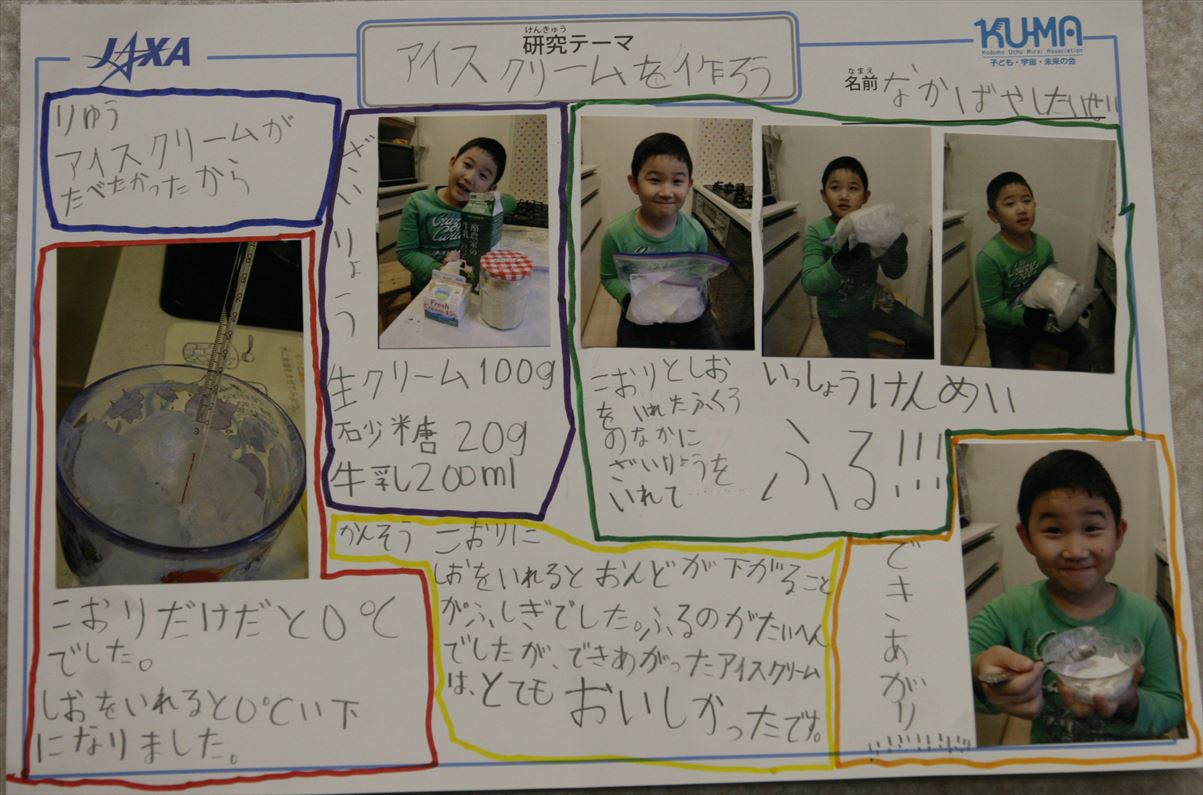 JAXA
けんきゅう
研究テーマ
アイスクリームを作ろう
KU-MA
Kodomo Uchu Mirai Association
子ども・宇宙・未来の会
なまえ
名前 なかばやしたいせい
りゆう
アイスクリームが
たべたかったから
ざいりょう
生クリーム100g
砂糖 20g
牛乳200ml
こおりとしお
をいれたふくろ
のなかに
ざいりょうを
いれて……
いっしょうけんめい
ふる!!!
こおりだけだと0℃
でした。
しおをいれると0℃い下
になりました。
かんそう こおりに
しおをいれるとおんどが下がること
がふしぎでした。ふるのがたいへん
でしたが、できあがったアイスクリーム
は、とてもおいしかったです。
できあがり
Fresh